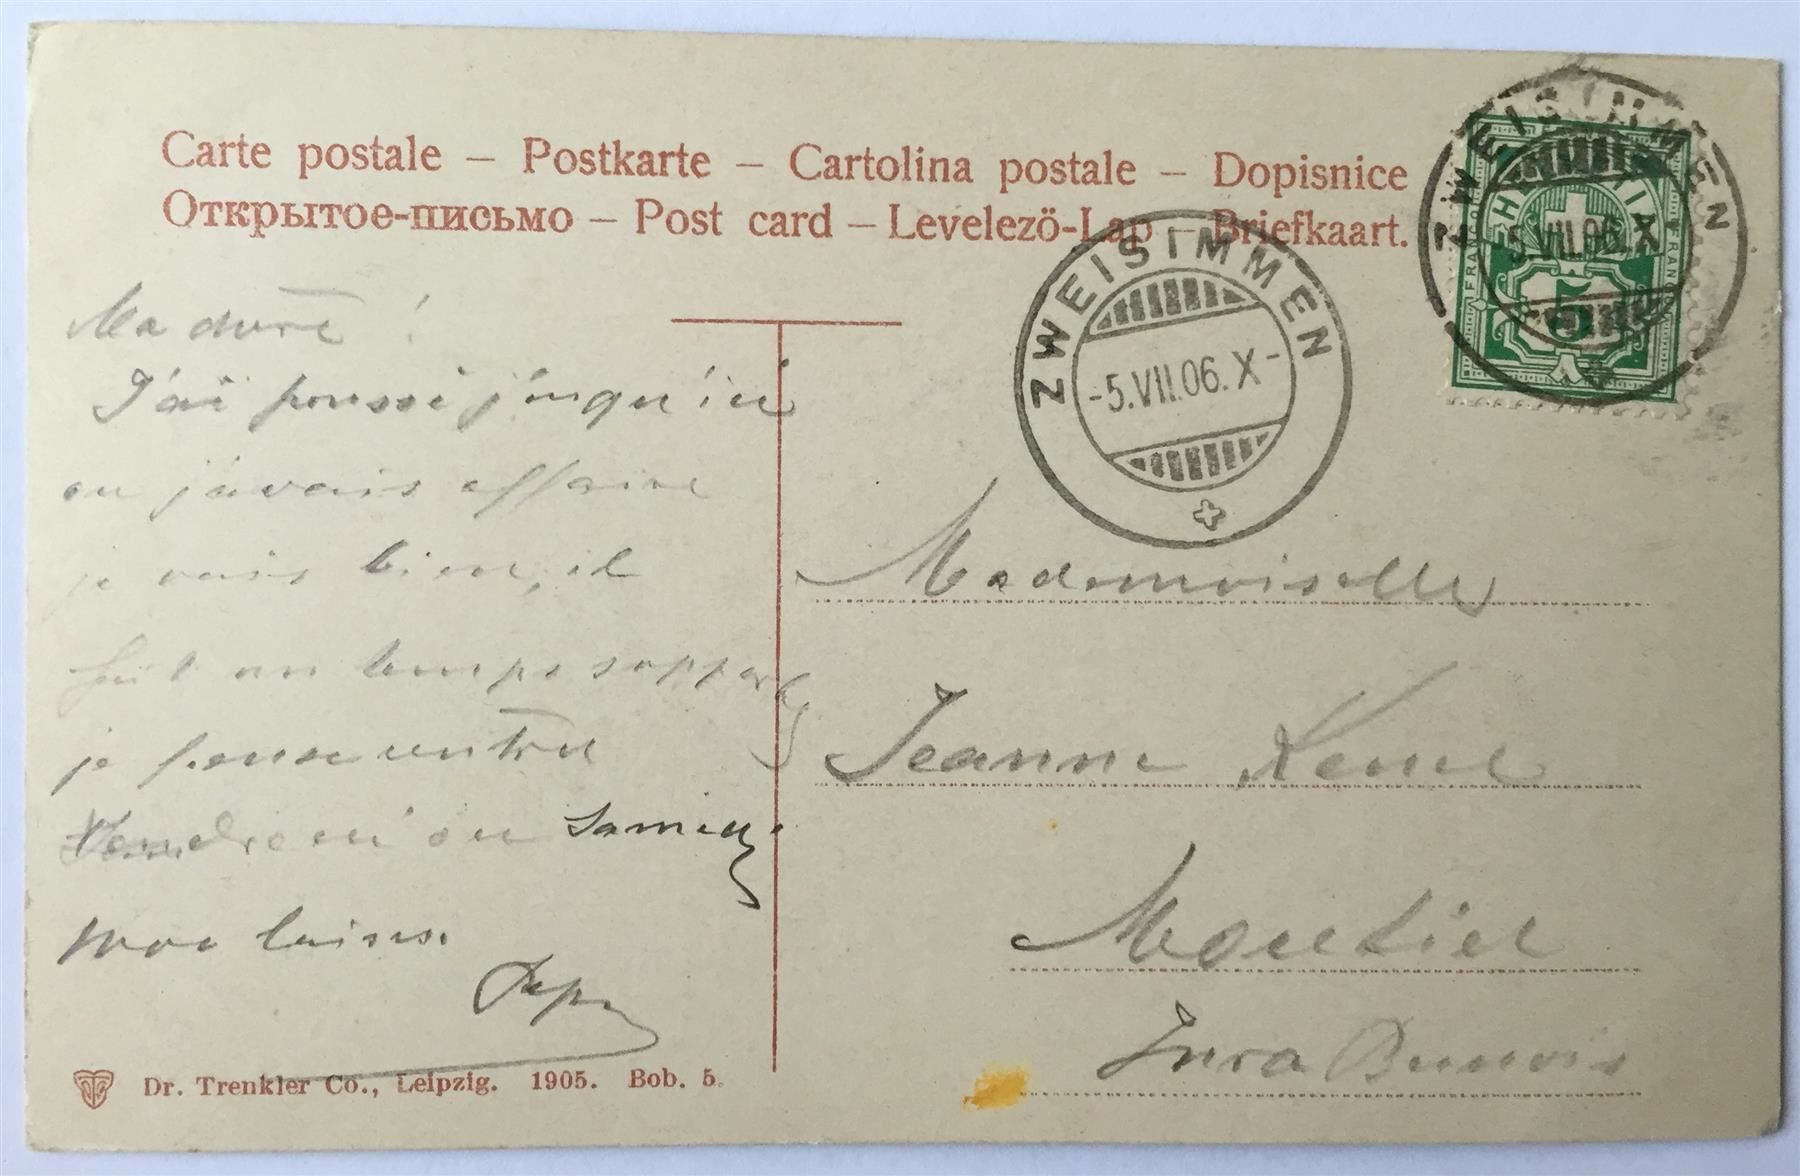 Carte postale – Postkarte – Cartolina postale – Dopisnice
Открытое-письмо – Post card – Levelező-Lap – Briefkaart.
ZWEISIMMEN
-5.VII.06.X-
ZWEISIMMEN
-5.VII.06.X
FRANCO
HELVETIA
5
Ma
J'ai poussé jusqu'ici
ou j'avais affaire
je vais bien, il
fait un temps
je pense
Vendredi ou Samedi
baisers.
Papa
Mademoiselle
Jeanne
Moutier
Jura Bernois
Dr. Trenkler Co., Leipzig. 1905. Bob. 5.